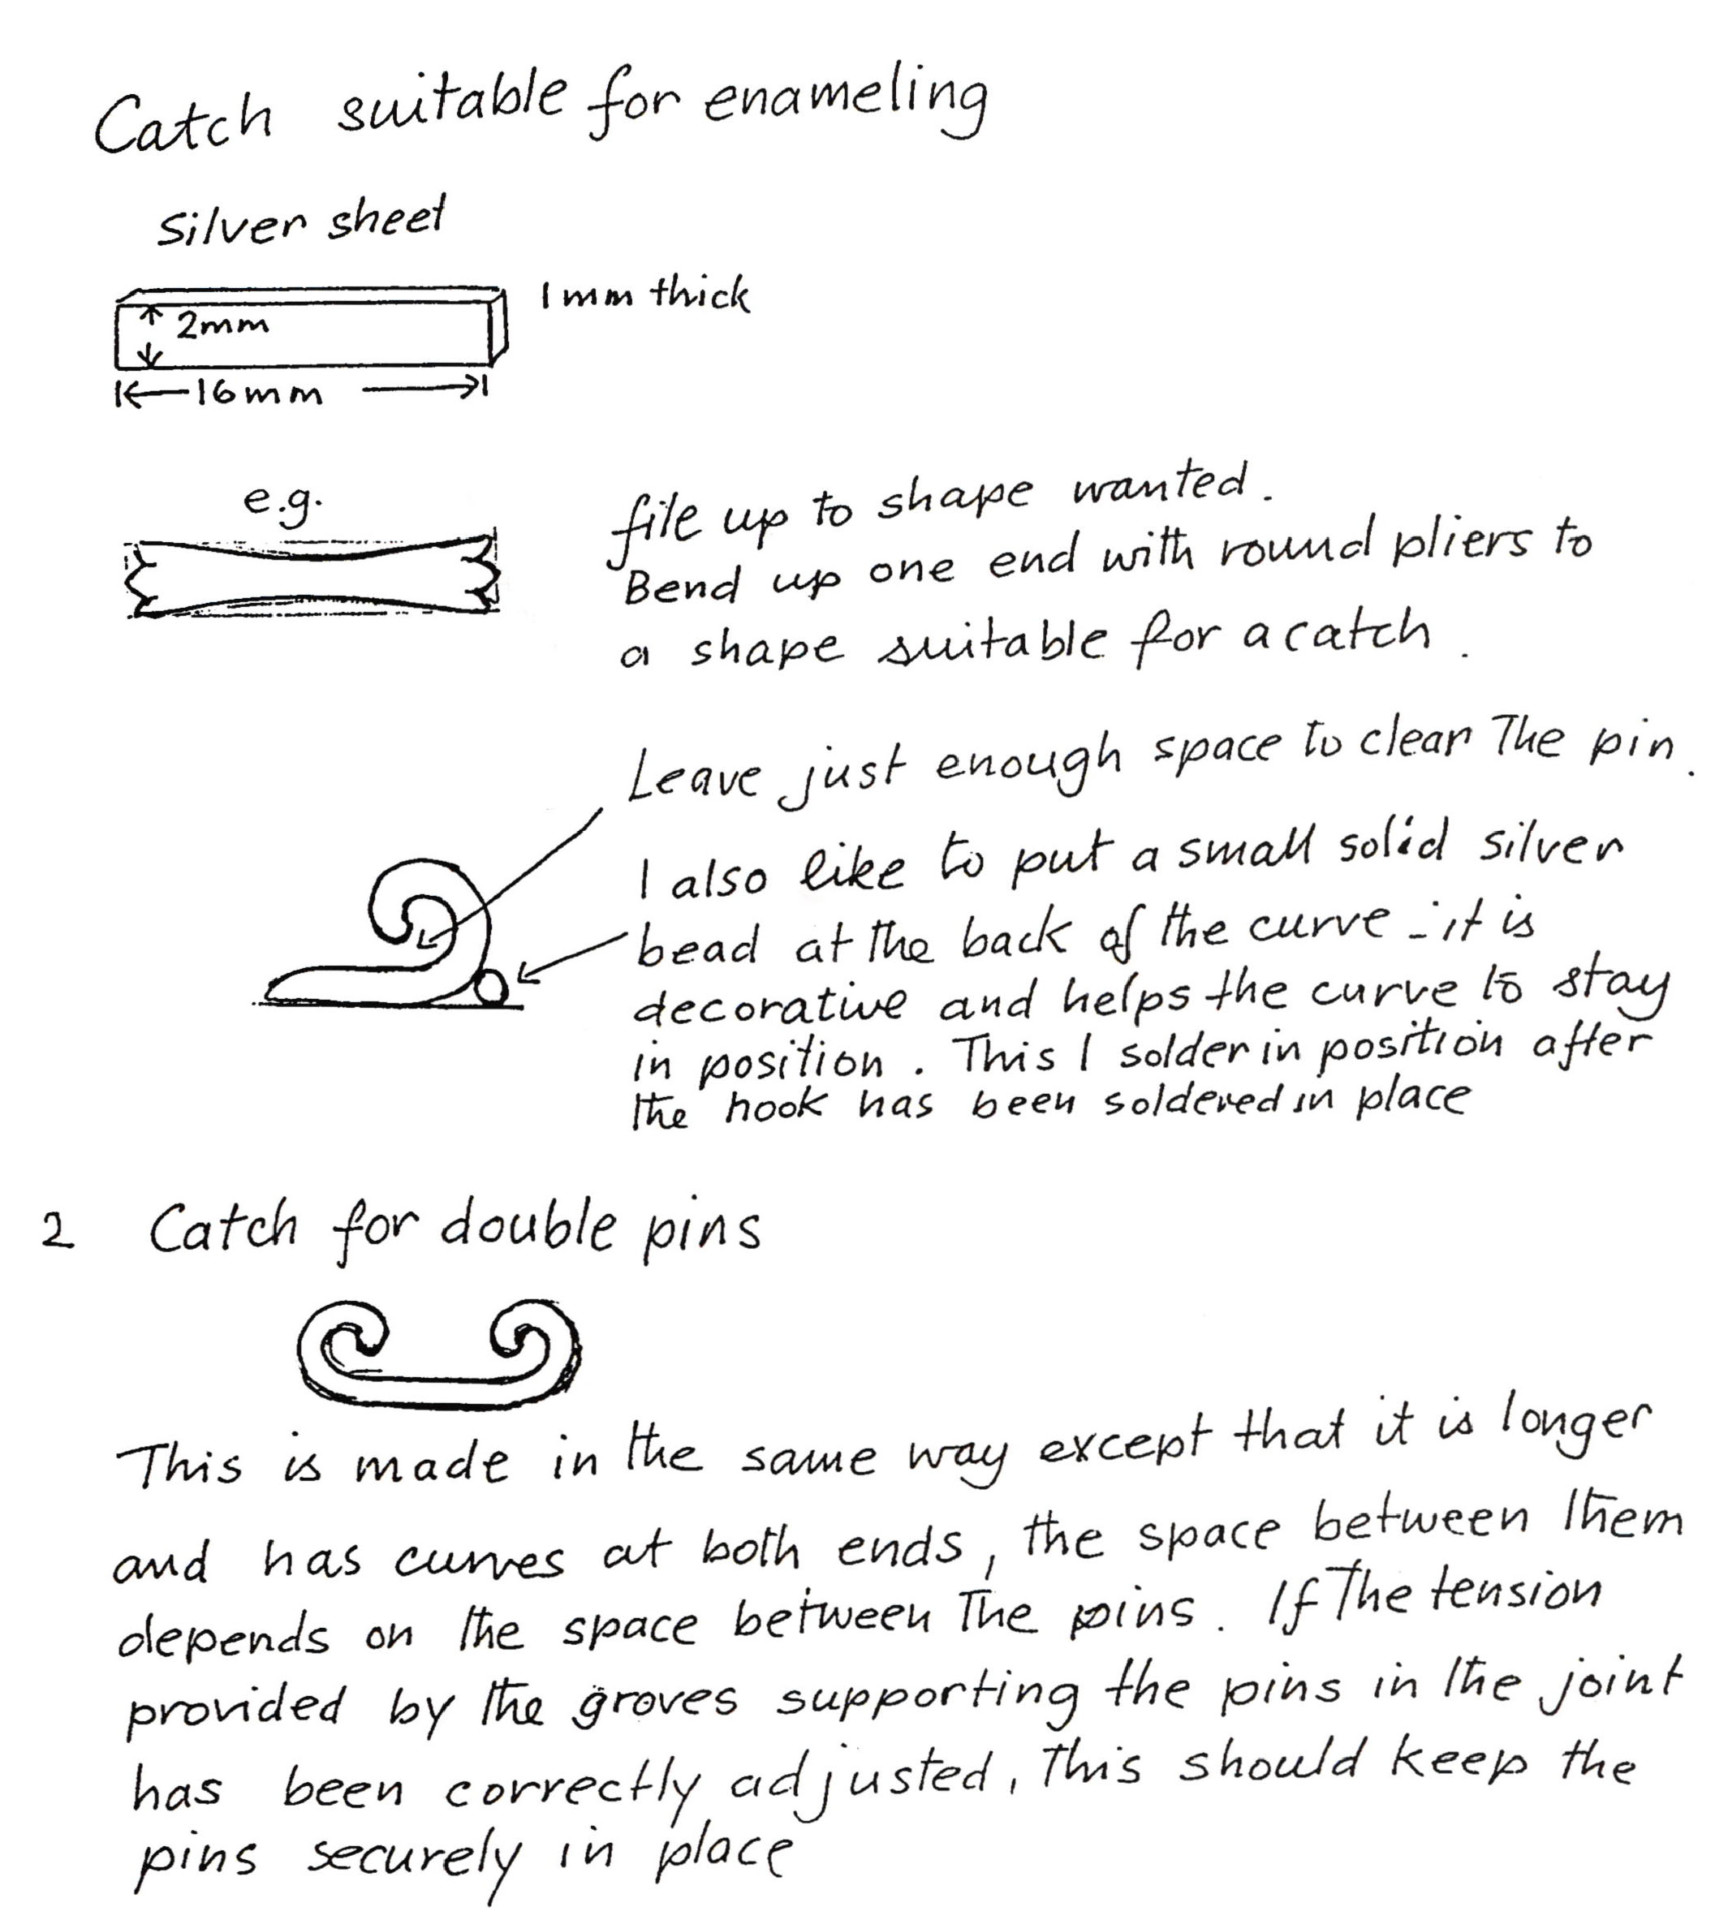 Catch suitable for enameling
Silver sheet
1mm thick
2mm
16mm
e.g.
file up to shape wanted.
Bend up one end with round pliers to
a shape suitable for a catch.
Leave just enough space to clear The pin.
I also like to put a small solid silver
bead at the back of the curve - it is
decorative and helps the curve to stay
in position. This I solder in position after
the hook has been soldered in place
2 Catch for double pins
This is made in the same way except that it is longer
and has curves at both ends, the space between them
depends on the space between The pins. If The tension
provided by the groves supporting the pins in the joint
has been correctly adjusted, This should keep the
pins securely in place